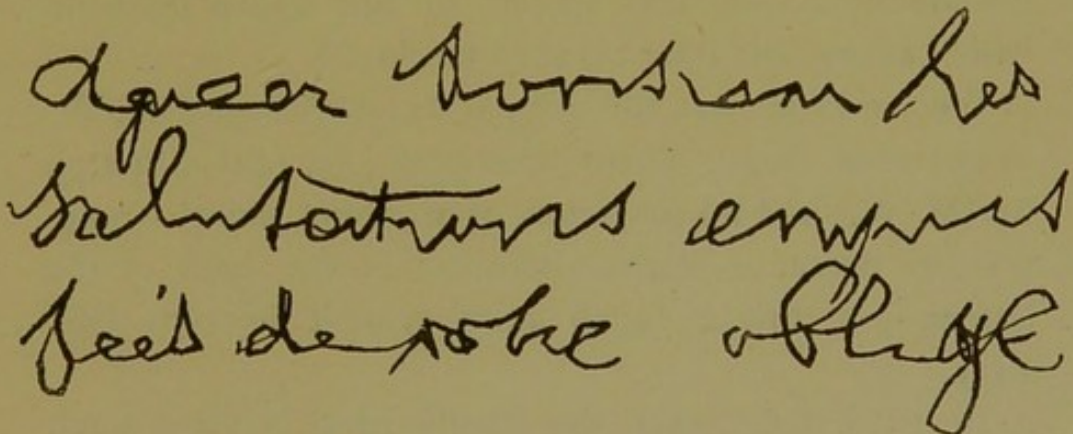 agreer Monsieur les
salutations empres
sées de votre obligé